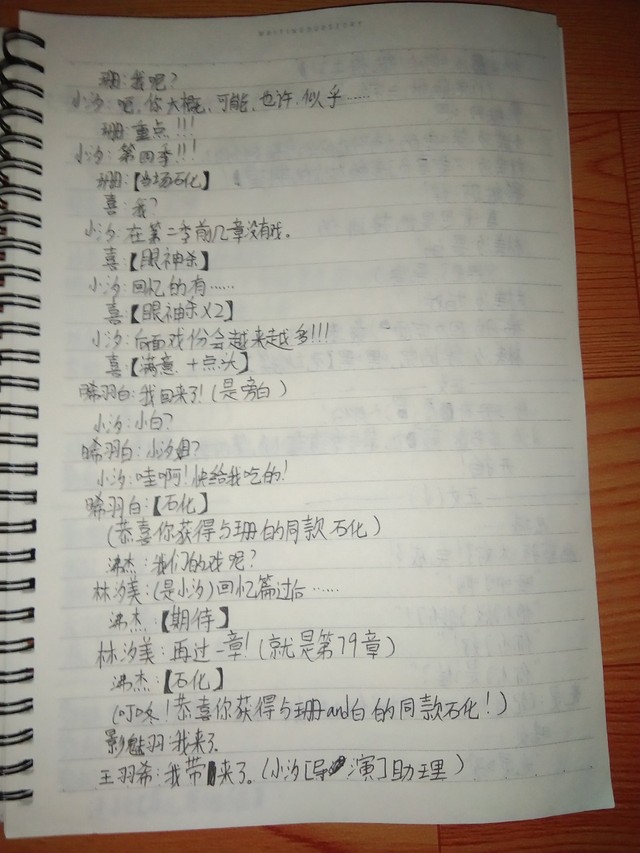 珊:我呢?
小汐:呃,你大概,可能,也许,似乎……
珊:重点!!!
小汐:第四季!!!
珊:【当场石化】
喜:我?
小汐:在第二季前几章没有戏。
喜【眼神杀】
小汐:回忆的有……
喜【眼神杀X2】
小汐:后面戏份会越来越多!!!
喜【满意+点头】
晞羽白:我回来了!(是旁白)
小汐:小白?
晞羽白:小汐姐?
小汐:哇啊!快给我吃的!
晞羽白:【石化】
(恭喜你获得与珊的同款石化)
沸杰:我们的戏呢?
林汐美:(是小汐)回忆篇过后……
沸杰:【期待】
林汐美:再过一章!(就是第79章)
沸杰:【石化】
(叮咚!恭喜你获得与珊and白的同款石化!)
影魅羽:我来了
王羽希:我带来了。(小汐[导演]助理)